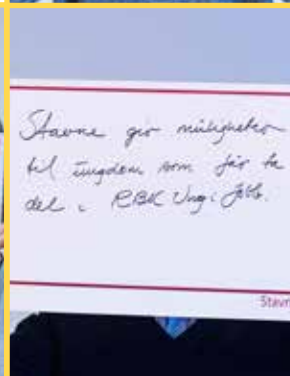 Stavne gir muligheter
til ungdom som får ta
del i RBK Ung i jobb.
Stavn